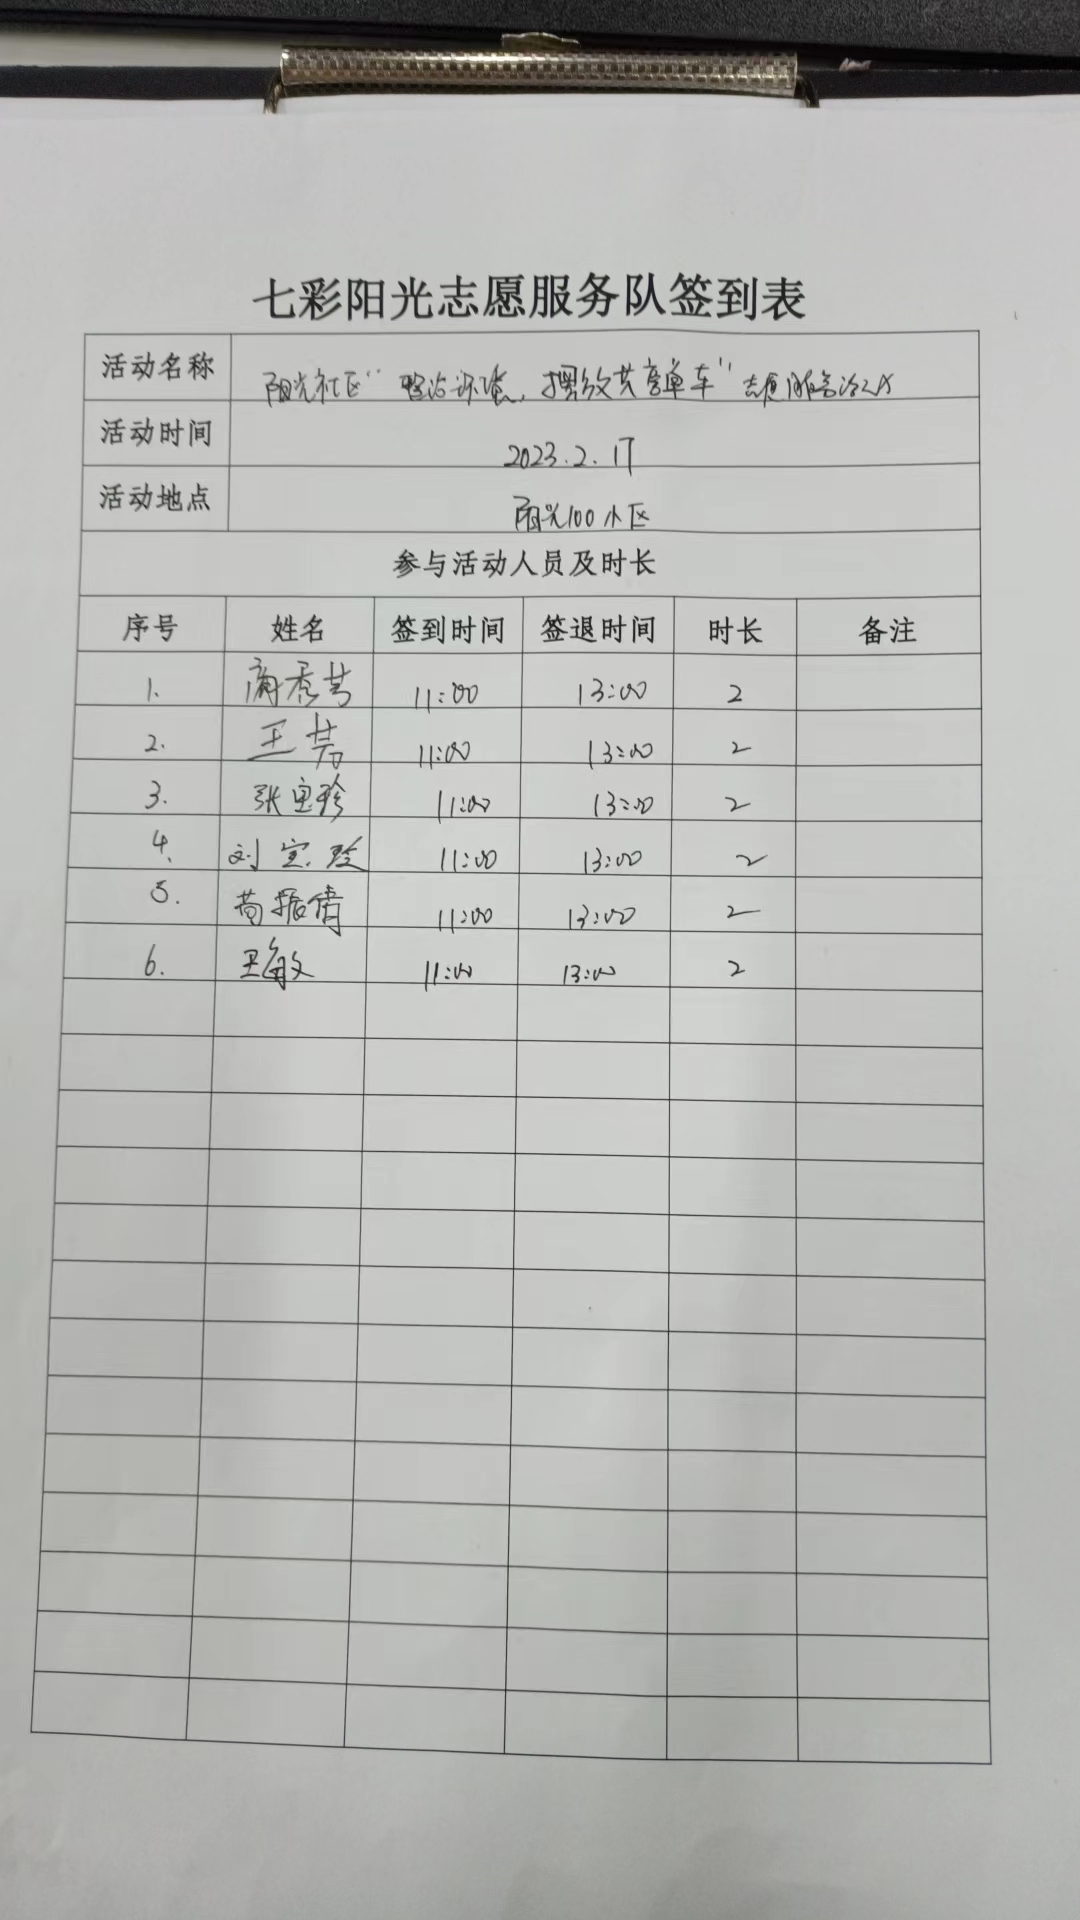 七彩阳光志愿服务队签到表
活动名称 阳光社区"整治环境，摆放共享单车"志愿服务活动
活动时间 2023.2.17
活动地点 阳光100小区
参与活动人员及时长
序号 姓名 签到时间 签退时间 时长 备注
1. 11:00 13:00 2
2. 王芳 11:00 13:00 2
3. 张宝珍 11:00 13:00 2
4. 刘宝玲 11:00 13:00 2
5. 苟振倩 11:00 13:00 2
6. 王敏 11:00 13:00 2